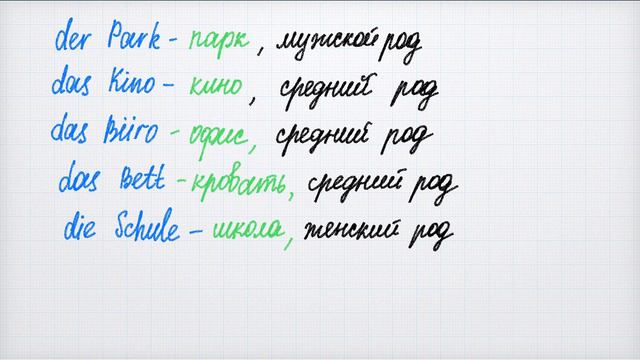 der Park - парк, мужской род
das Kino - кино, средний род
das Büro - офис, средний род
das Bett - кровать, средний род
die Schule - школа, женский род